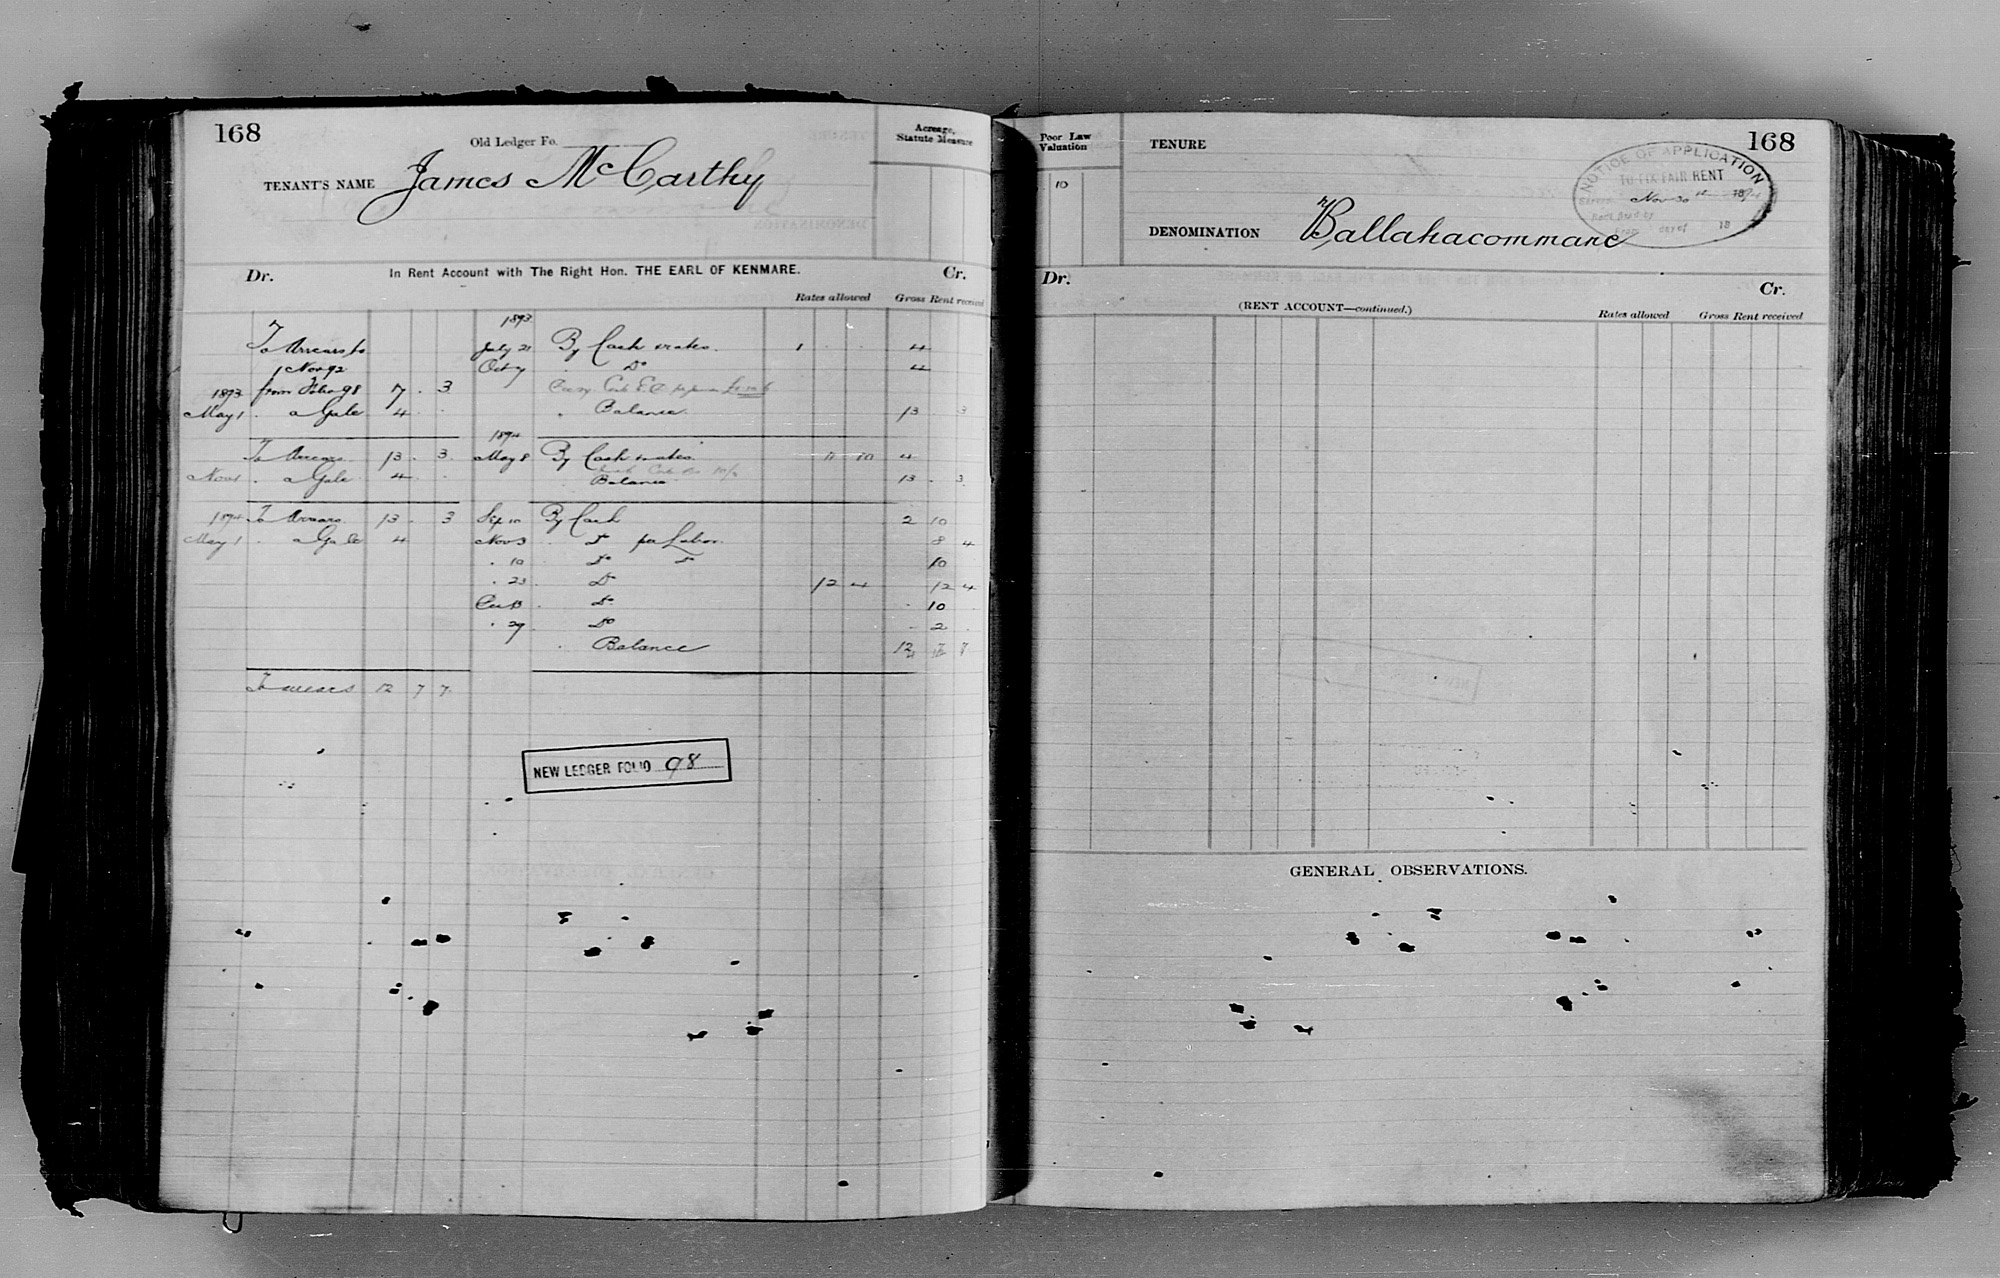 168
Old Ledger Fo.
Acreage,
Statute Measure
TENANT'S NAME James McCarthy
Dr. In Rent Account with The Right Hon. THE EARL OF KENMARE. Cr.
Rates allowed Gross Rent received
1893
To Arrears to July 21 By Cash & rates. 1 . . 4
1 Nov 92 Oct 7 . Do 4
1893 from Folio 98 7 . 3
May 1 . a Gale 4 . . " Balance 13 3
1894
To Arrears 13 . 3 May 8 By Cash & rates. 11 10 4
Nov 1 . a Gale 4 . .
Balance 13 . 3
1894 To Arrears 13 . 3 Sep 10 By Cash 2 10
May 1 . a Gale 4 Nov 3 . Do per Labor 8 4
. 10 Do Do 10
. 23 . Do 12 4 12 4
Dec 13 . Do . 10
. 29 . Do . 2 .
. Balance 12
To arrears 12 7 7
NEW LEDGER FOLIO 98
Poor Law
Valuation
10
TENURE
168
NOTICE OF APPLICATION
TO FIX FAIR RENT
Nov 30
day of 18
DENOMINATION Ballahacommane
Dr. Cr.
(RENT ACCOUNT—continued.)
Rates allowed Gross Rent received
GENERAL OBSERVATIONS.